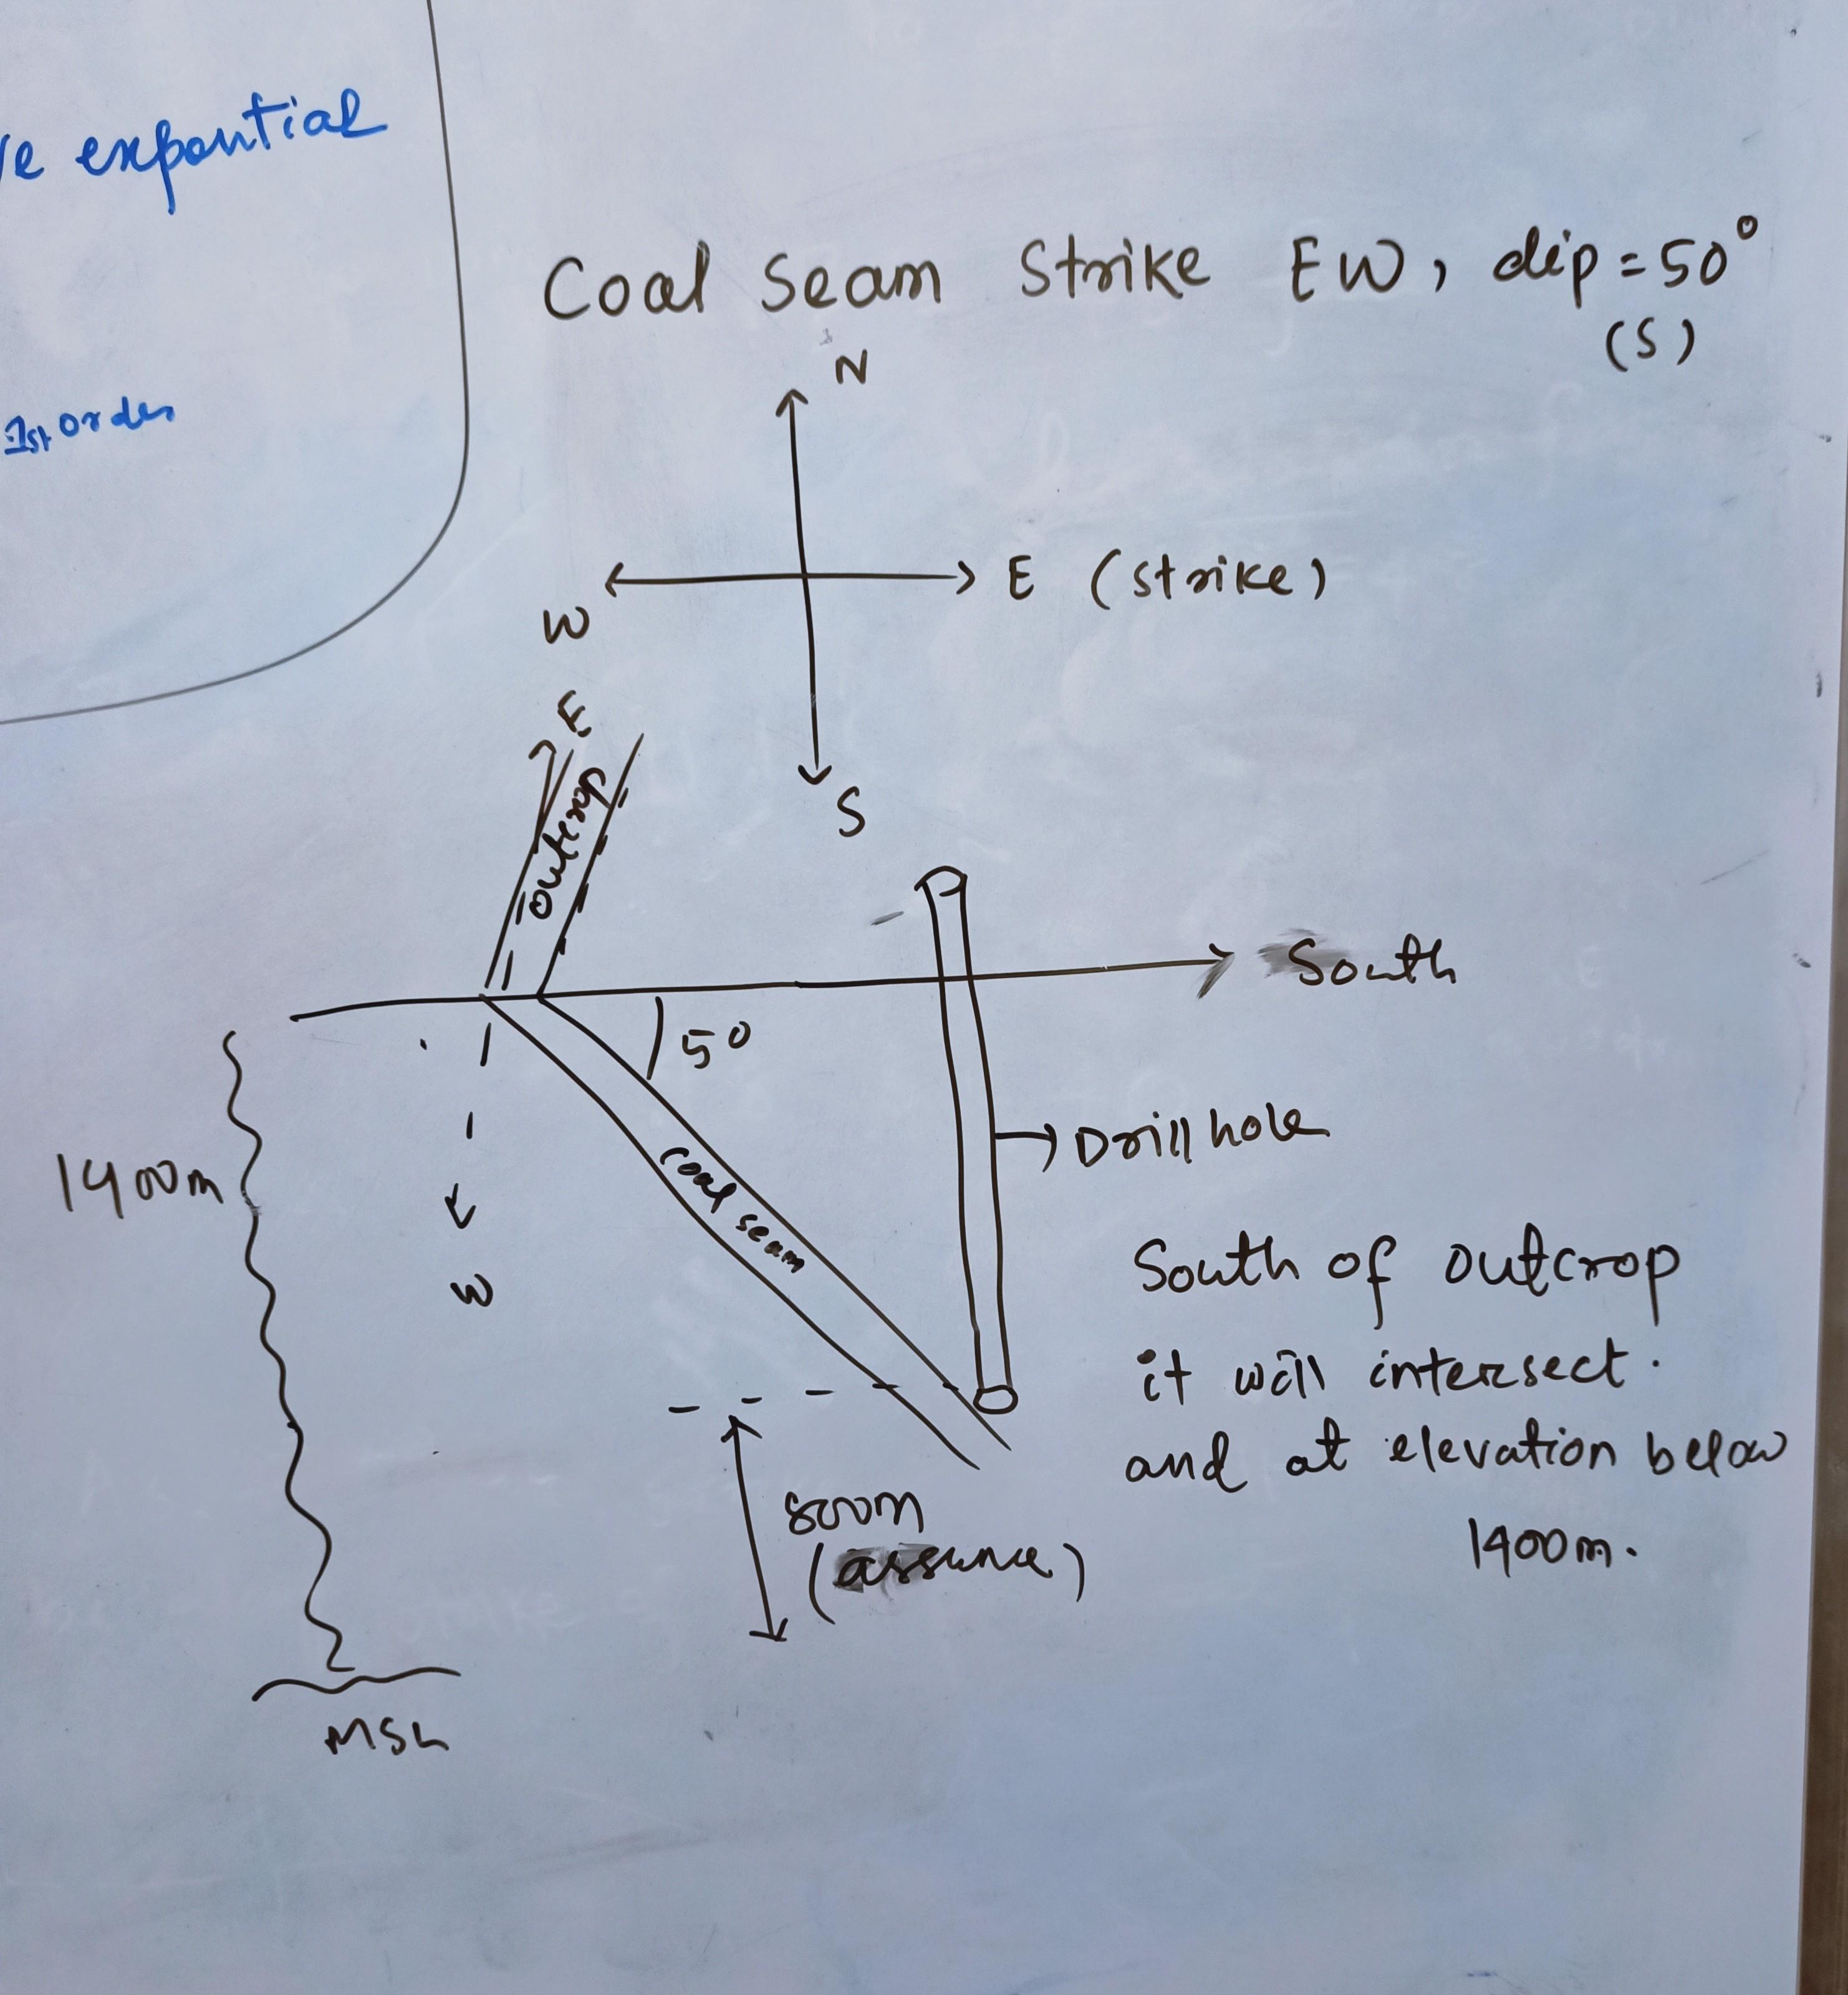 ve expontial
1st order
Coal Seam Strike EW, dip = 50°
(S)
N
E (strike)
W
S
E
outcrop
South
50
1400m
coal seam
Drill hole
W
South of outcrop
it will intersect.
and at elevation below
1400m.
800m
(assume)
MSL